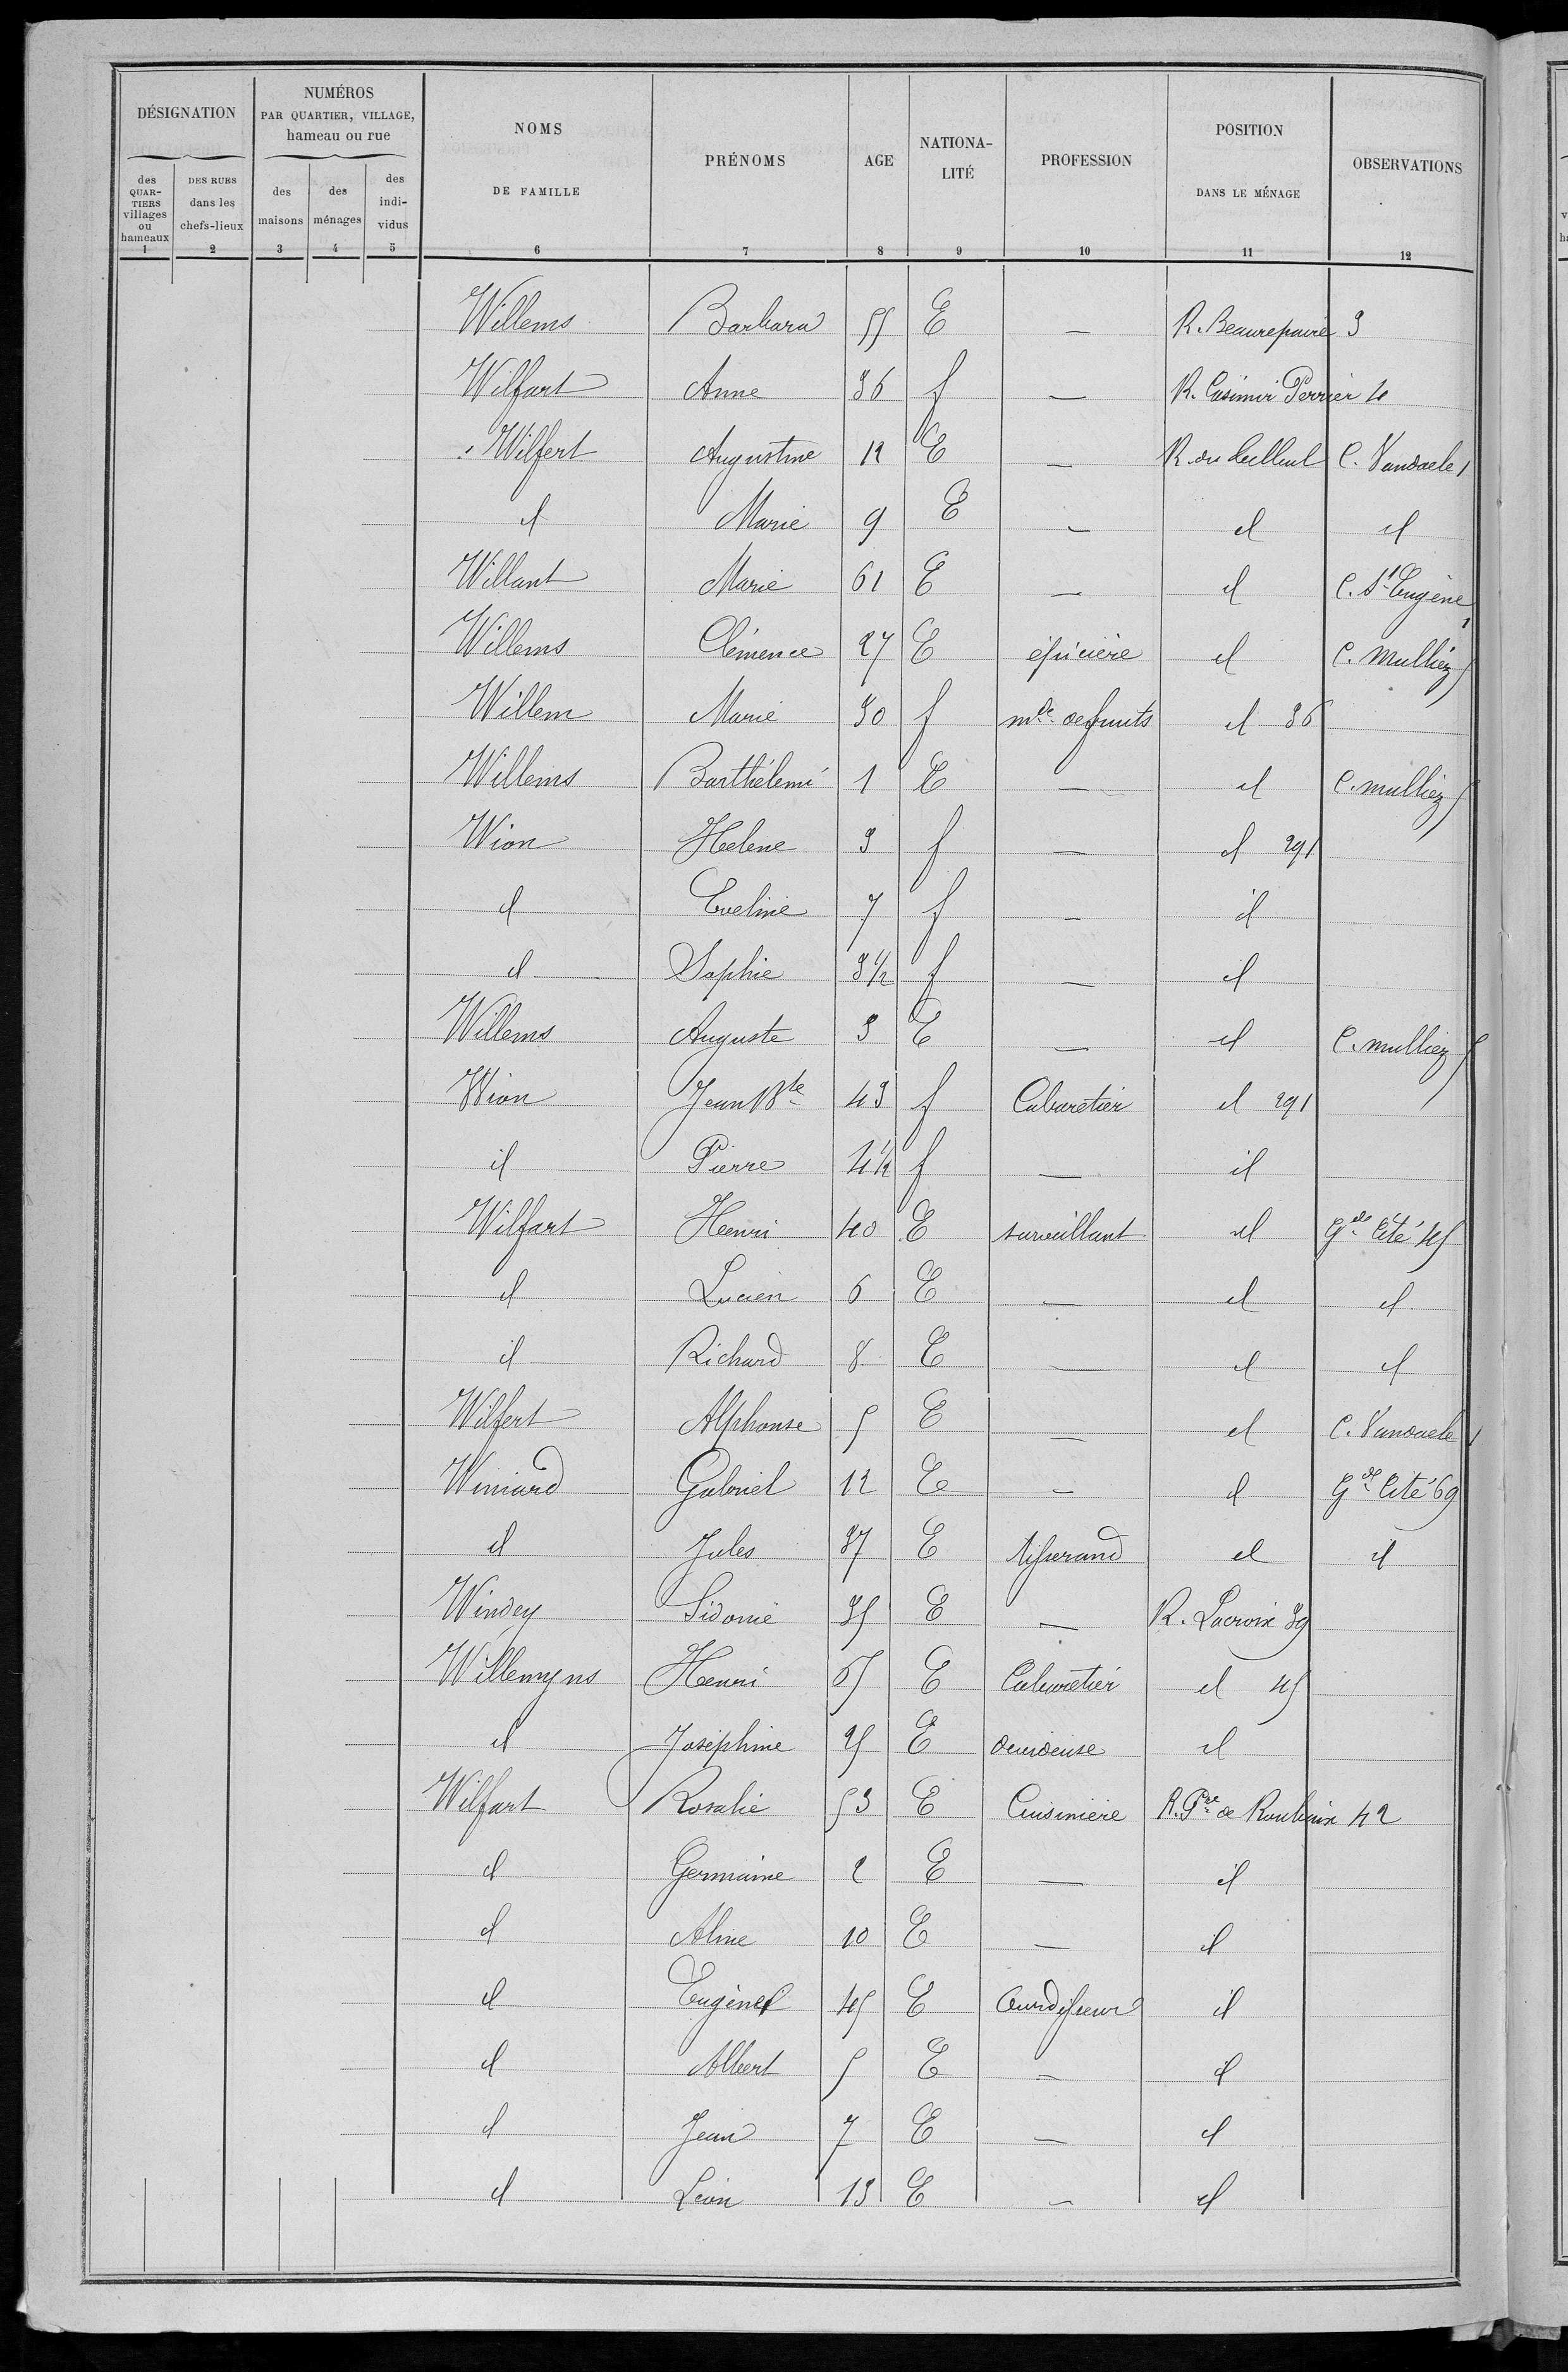 DÉSIGNATION
NUMÉROS
PAR QUARTIER, VILLAGE,
hameau ou rue
NOMS
DE FAMILLE
PRÉNOMS
AGE
NATIONA-
LITÉ
PROFESSION
POSITION
DANS LE MÉNAGE
OBSERVATIONS
des
QUAR-
TIERS
villages
ou
hameaux
DES RUES
dans les
chefs-lieux
des
maisons
des
ménages
des
indi-
vidus
1 2 3 4 5 6 7 8 9 10 11 12
Willems Barbara 55 E — R. Beaurepaire 3
Wilfart Anne 36 f — R. Casimir Perrier 4
Wilfert Augustine 12 E — R. du C. Vandaele 1
id Marie 9 E — id id
Willant Marie 61 E — id C. St Eugène 1
Willems Clémence 27 E épicière id C. Mulliez 5
Willem Marie 30 f mde de fruits id 36
Willems Barthélemi 1 E — id C. mulliez 5
Wion Helene 3 f — id 291
id Eveline 7 f — id
id Sophie 3 1/2 f — id
Willems Auguste 3 E — id C. mulliez 5
Wion Jean Bte 43 f Cabaretier id 291
id Pierre 4 1/2 f — id
Wilfart Henri 40 E surveillant id Gde Cité 45
id Lucien 6 E — id id
id Richard 8 E — id id
Wilfert Alphonse 5 E — id C. Vandaele 1
Winiard Gabriel 12 E — id Gde Cité 69
id Jules 37 E tisserand id id
Windey Sidonie 35 E — R. Lacroix 39
Willemyns Henri 65 E Cabaretier id 45
id Joséphine 25 E devideuse id
Wilfart Rosalie 53 E Cuisinière R. Pre de Roubaix 42
id Germaine 2 E — id
id Aline 10 E — id
id Eugène 45 E Ourdisseur id
id Albert 5 E — id
id Jean 7 E — id
id Léon 13 E — id